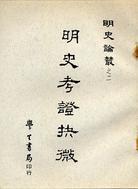 明史論叢之二
明史考證抉微
學生書局印行